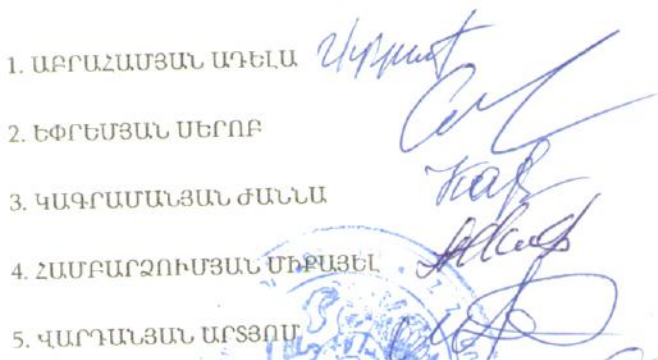 1. ԱԲՐԱՀԱՄՅԱՆ ԱԴԵԼԱ
2. ԵՓՐԵՄՅԱՆ ՍԵՐՈԲ
3. ԿԱԳՐԱՄԱՆՅԱՆ ԺԱՆՆԱ
4. ՀԱՄԲԱՐՁՈՒՄՅԱՆ ՄԻՔԱՅԵԼ
5. ՎԱՐԴԱՆՅԱՆ ԱՐՏՅՈՄ